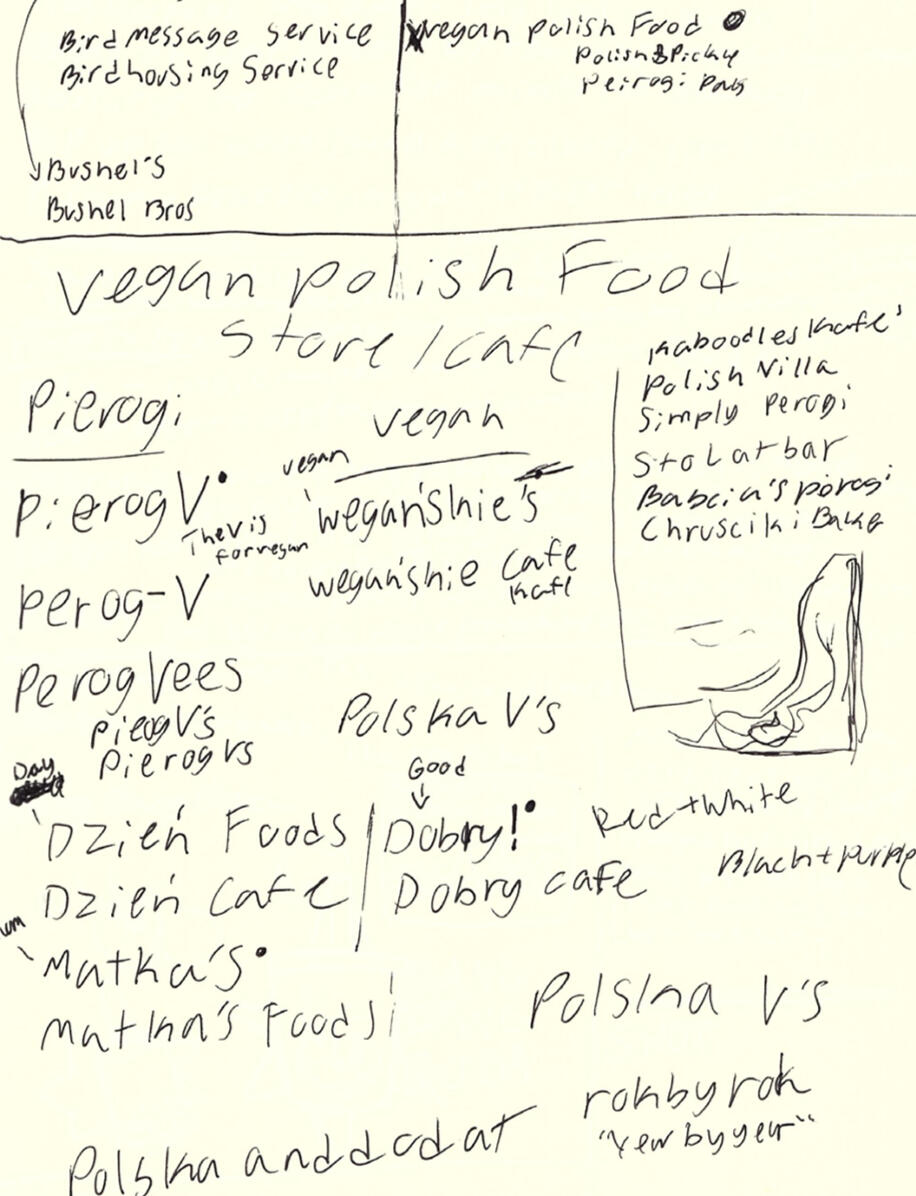 Bird message service
Birdhousing Service
Bushel's
Bushel Bros
vegan polish Food
Polish & Pickle
Peirogi Pals
vegan polish Food
Store / cafe
Pierogi
vegan
PierogV
The v is
for vegan
Perog-V
PerogVees
PieogV's
Pierogvs
vegan
wegańskie's
wegańskie Cafe
Kafe
Polska V's
Kaboodles Kafe'
Polish Villa
Simply Perogi
Sto Lat bar
Babcia's porogi
Chrusciki Bake
Day
Dzień Foods
Dzień Cafe
Good
Dobry!
Dobry cafe
Red + white
Black + purple
Matka's
Matka's Foods
Polska V's
rok by rok
"Year by year"
Polska and dodat